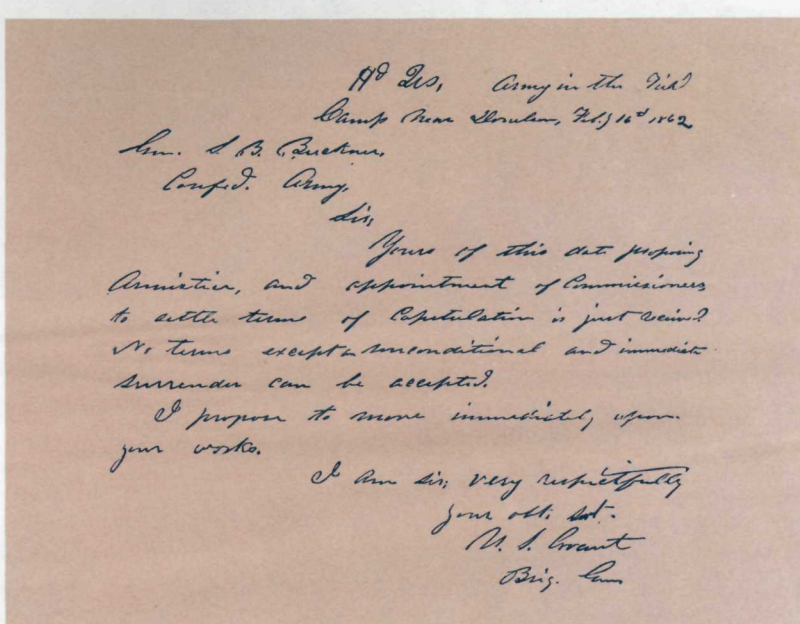 Hd Qrs, Army in the Field
Camp near Donelson, Feb.y 16th 1862
Gen. S. B. Buckner,
Confed. Army,
Sir,
Yours of this date proposing
Armistice, and appointment of Commissioners
to settle terms of Capitulation is just received.
No terms except an unconditional and immediate
surrender can be accepted.
I propose to move immediately upon
your works.
I am sir; very respectfully
your obt. svt.
U. S. Grant
Brig. Gen